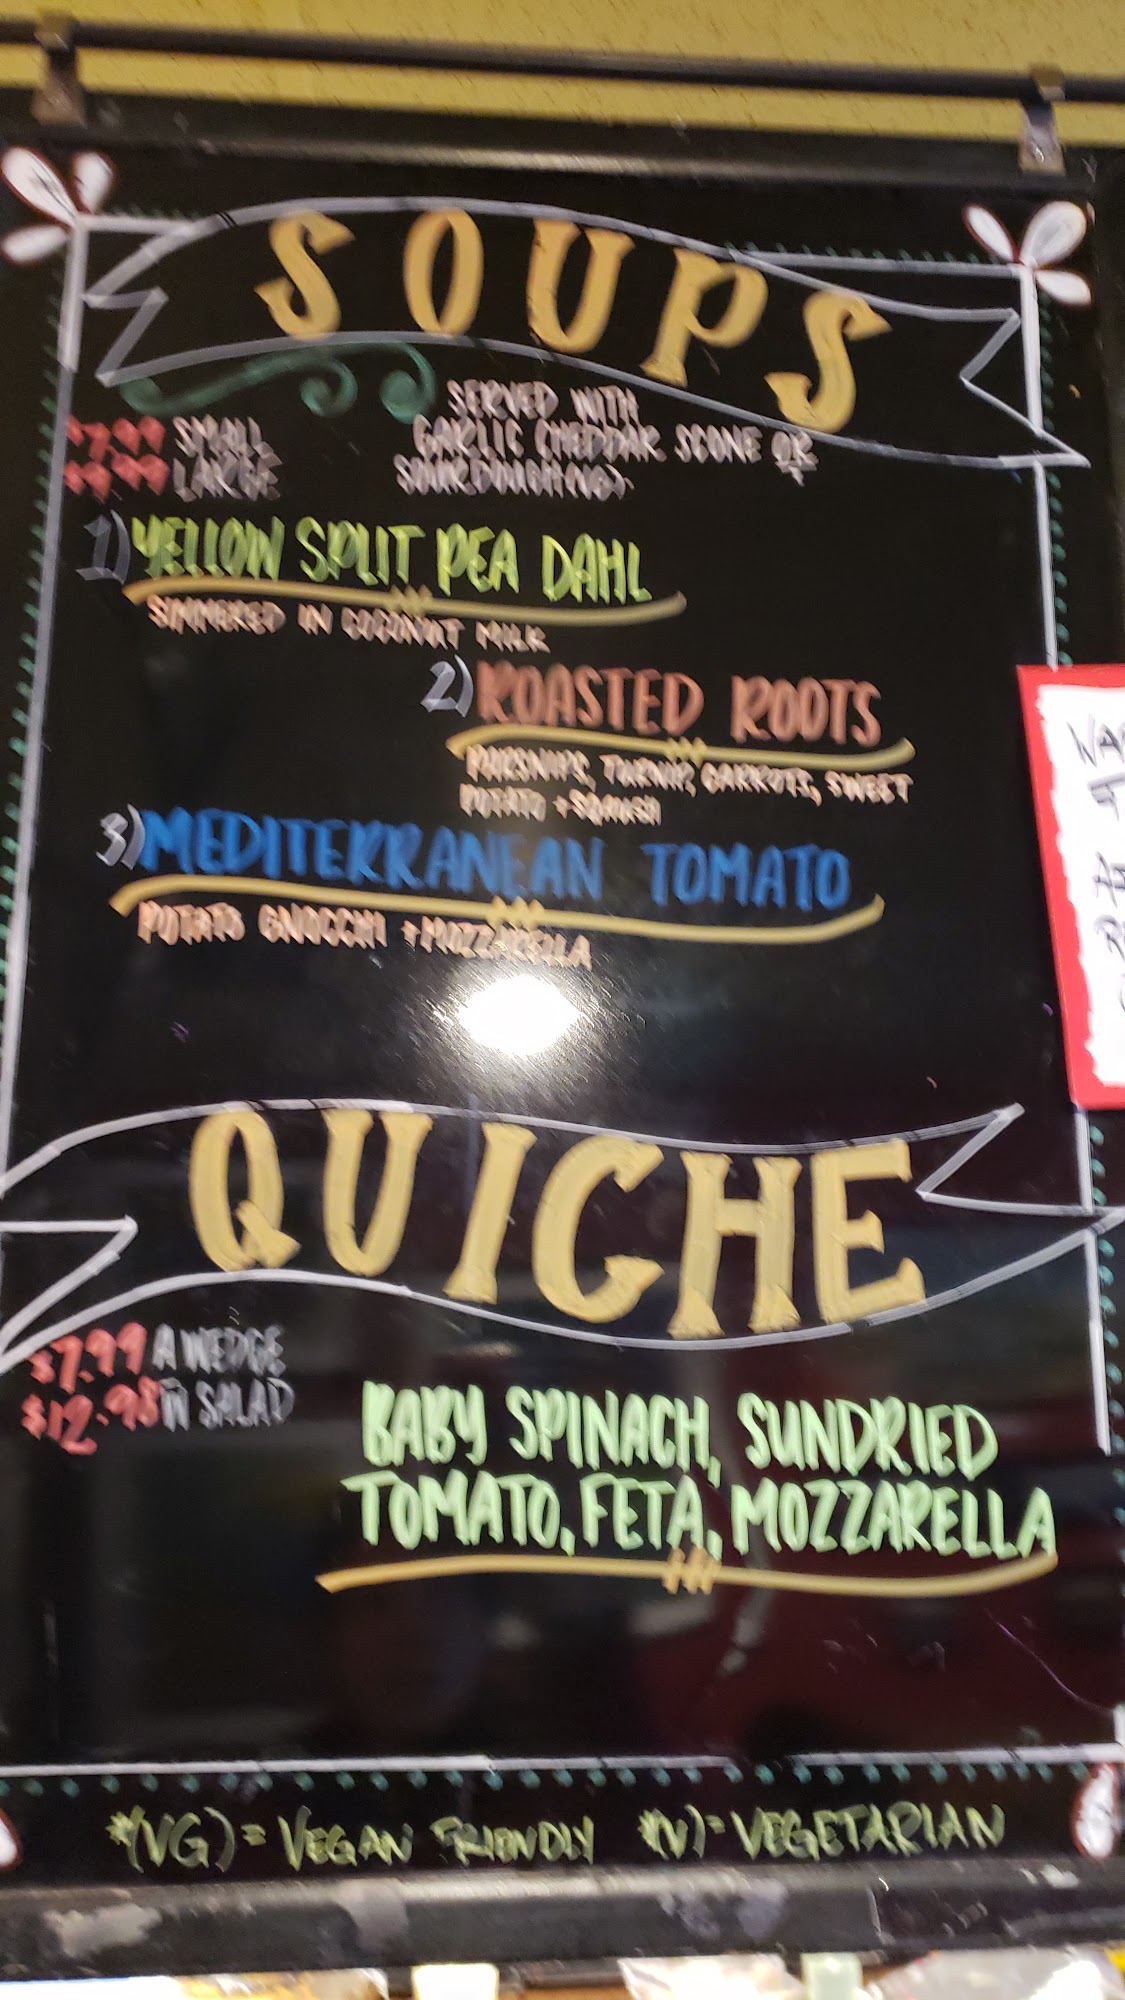 SOUPS
SERVED WITH
$7.99 SMALL
GARLIC CHEDDAR SCONE OR
$9.99 LARGE
SOURDOUGH (VG)
1) YELLOW SPLIT PEA DAHL
SIMMERED IN COCONUT MILK
2) ROASTED ROOTS
PARSNIPS, TURNIP, CARROTS, SWEET
POTATO + SQUASH
3) MEDITERRANEAN TOMATO
POTATO GNOCCHI + MOZZARELLA
QUICHE
$7.99 A WEDGE
$12.98 W SALAD
BABY SPINACH, SUNDRIED
TOMATO, FETA, MOZZARELLA
*(VG) = VEGAN FRIENDLY *(V) = VEGETARIAN